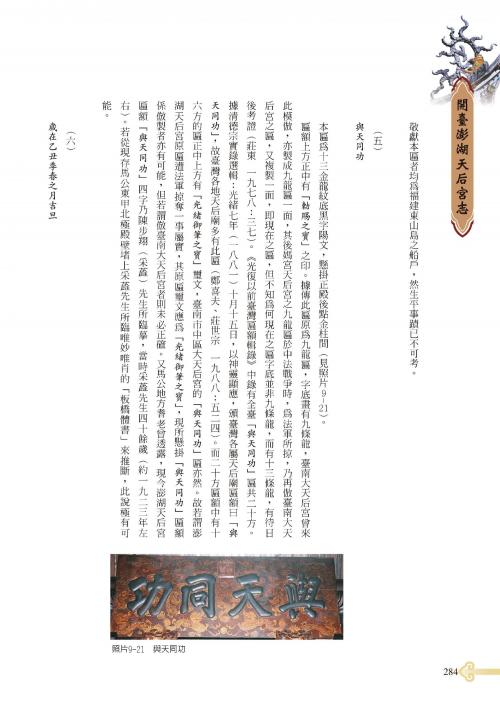 開臺澎湖天后宮志
敬獻本匾者均爲福建東山島之船戶，然生平事蹟已不可考。
（五）
與天同功
本匾爲十三金龍紋底黑字陽文，懸掛正殿後點金柱間（見照片9-21）。
匾額上方正中有「勅賜之寶」之印。據傳此匾原爲九龍匾，字底畫有九條龍，臺南大天后宮曾來
此模倣，亦製成九龍匾一面，其後媽宮天后宮之九龍匾於中法戰爭時，爲法軍所掠，乃再倣臺南大天
后宮之匾，又複製一面，即現在之匾，但不知爲何現在之匾字底並非九條龍，而有十三條龍，有待日
後考證（莊東　一九七八：三七）。《光復以前臺灣匾額輯錄》中錄有全臺「與天同功」匾共二十方。
據清德宗實錄選輯：光緒七年（一八八一）十月十五日，以神靈顯應，頒臺灣各屬天后廟匾額曰「與
天同功」，故臺灣各地天后廟多有此匾（鄭喜夫、莊世宗　一九八八：五二四）。而二十方匾額中有十
六方的匾正中上方有「光緒御筆之寶」璽文，臺南市中區大天后宮的「與天同功」匾亦然。故若謂澎
湖天后宮原匾遭法軍掠奪一事屬實，其原匾璽文應爲「光緒御筆之寶」，現所懸掛「與天同功」匾額
係倣製者亦有可能，但若謂倣臺南大天后宮者則未必正確。又馬公地方耆老曾透露，現今澎湖天后宮
匾額「與天同功」四字乃陳步翔（采蓋）先生所臨摹，當時采蓋先生四十餘歲（約一九二三年左
右）。若從現存馬公東甲北極殿壁堵上采蓋先生所臨唯妙唯肖的「板橋體書」來推斷，此說極有可
能。
（六）
歲在乙丑季春之月吉旦
與天同功
照片9-21　與天同功
284